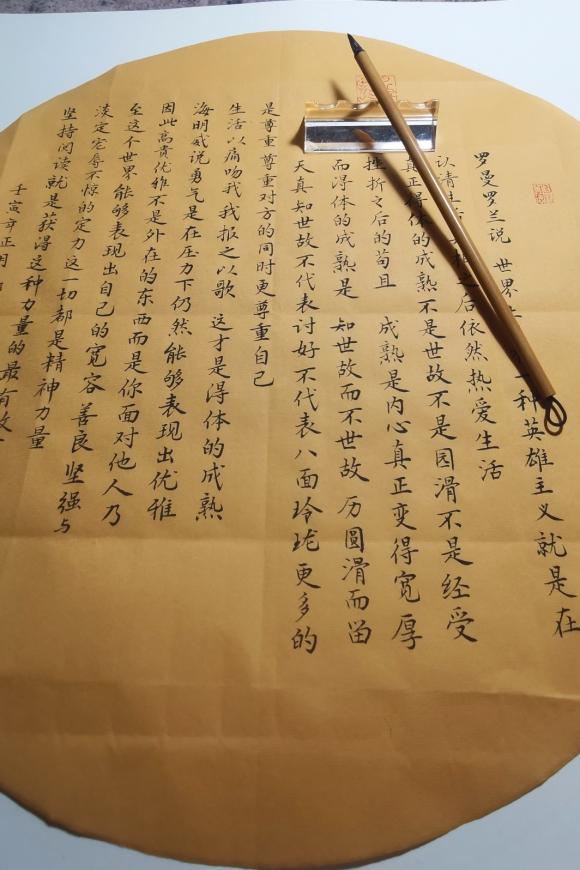 罗曼罗兰说 世界 一种英雄主义就是在
认清生 之后依然热爱生活
真正得体的成熟不是世故不是园滑不是经受
挫折之后的苟且 成熟是内心真正变得宽厚
而得体的成熟是 知世故而不世故 历圆滑而留
天真 知世故不代表讨好不代表八面玲珑更多的
是尊重尊重对方的同时更尊重自己
生活以痛吻我我报之以歌 这才是得体的成熟
海明威说勇气是在压力下仍然能够表现出优雅
因此高贵优雅不是外在的东西而是你面对他人乃
至这个世界能够表现出自己的宽容 善良 坚强与
淡定宠辱不惊的定力 这一切都是精神力量
坚持阅读就是获得这种力量的最有效
壬寅年正月